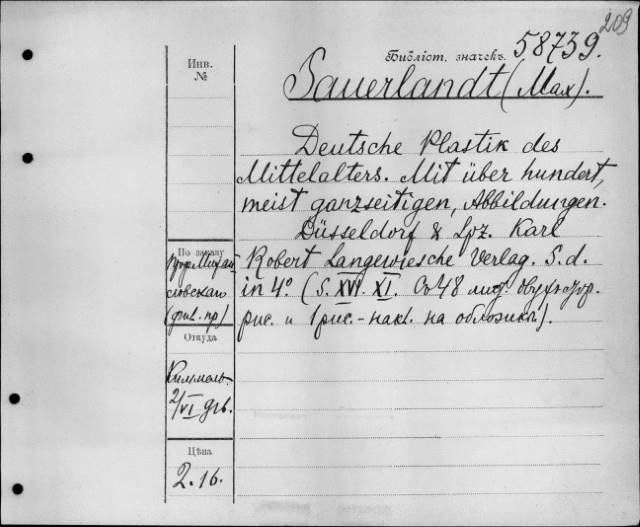 209
Библіот. значекъ 58739.
Инв.
№
Sauerlandt (Max).
Deutsche Plastik des
Mittelalters. Mit über hundert,
meist ganzseitigen, Abbildungen.
Düsseldorf & Lpz. Karl
Robert Langewiesche Verlag. S. d.
in 4° (S. XVI. XI. Съ 48
рис. и 1 рис.-накл. на обложкѣ).
По заказу
(фил. пр)
Откуда
Киммель
2/VI
Цѣна
2.16.